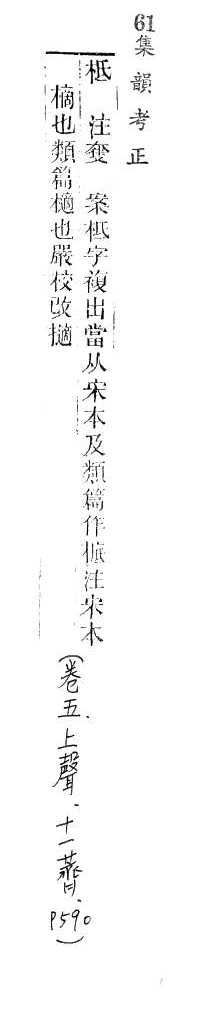 61集韻考正
柢 注㪇 案柢字複出當从宋本及類篇作㧗注宋本
樀也類篇擿也嚴校改擿
(卷五、上聲、十一薺、P590)